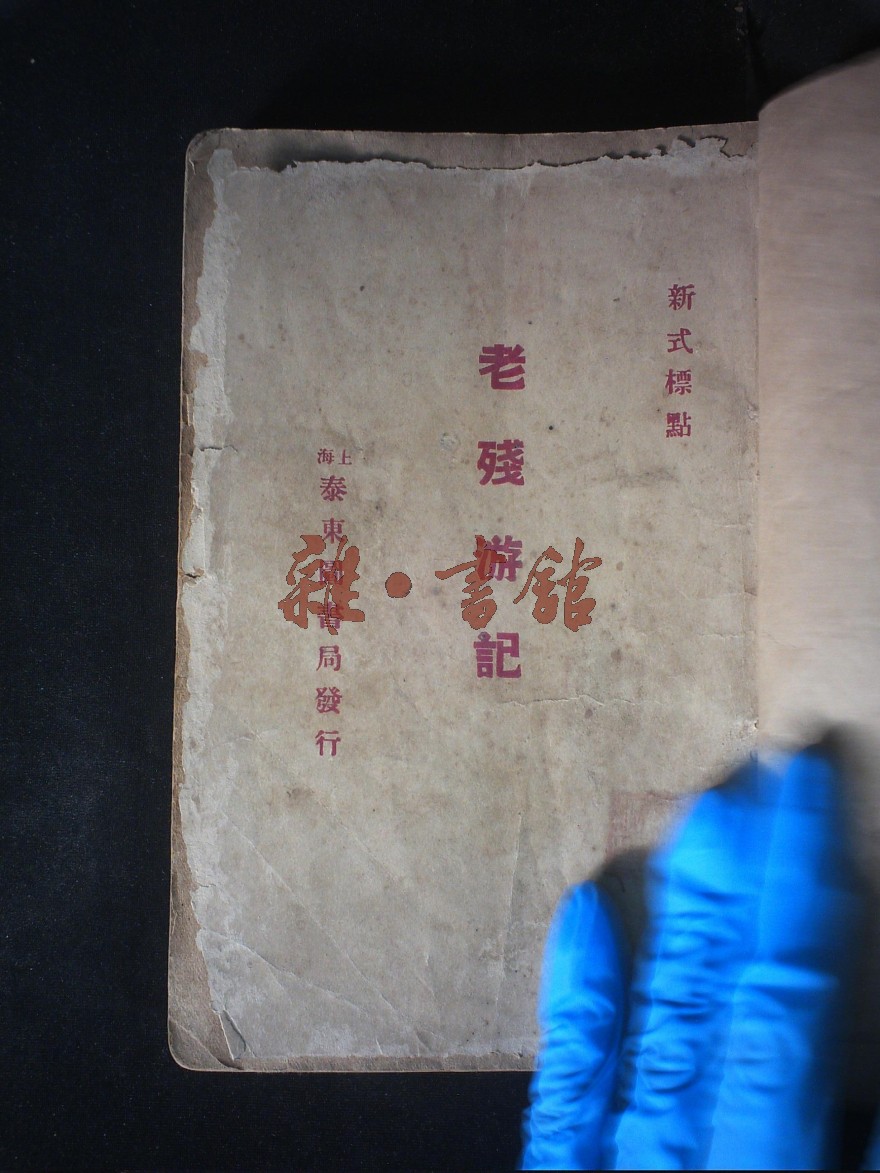 新式標點
老殘游記
上海
泰東圖書局發行
雜·書館